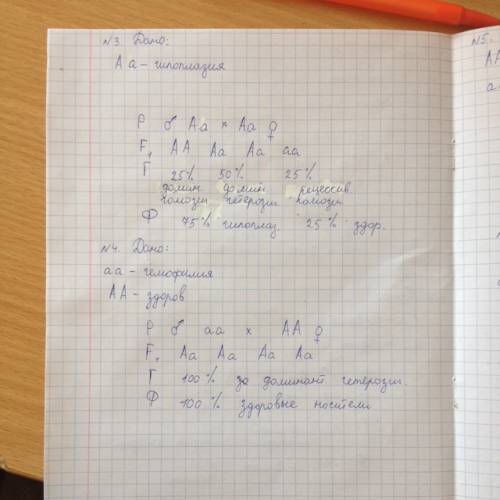 №3. Дано:
Аа – гипоплазия
Р ♂ Аа × Аа ♀
F₁ АА Аа Аа аа
Г 25% 50% 25%
домин домин рецессив.
гомозиг гетерозиг гомозиг
Ф 75% гипоплаз. 25% здор.
№4. Дано:
аа – гемофилия
АА – здоров
Р ♂ аа × АА ♀
F₁ Аа Аа Аа Аа
Г 100% доминант гетерозиг.
Ф 100% здоровые носители
№5.
АА
а